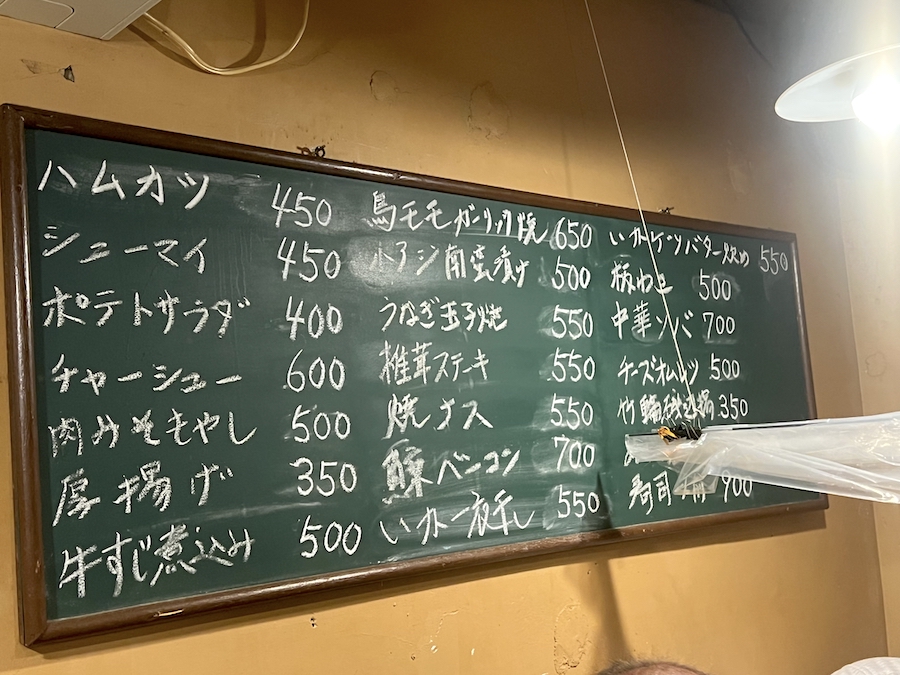 ハムカツ 450
シューマイ 450
ポテトサラダ 400
チャーシュー 600
肉みそもやし 500
厚揚げ 350
牛すじ煮込み 500
鳥モモガーリック焼 650
小アジ南蛮漬け 500
うなぎ玉子焼 550
椎茸ステーキ 550
焼ナス 550
鯨ベーコン 700
いか一夜干し 550
いかゲソバター炒め 550
板わさ 500
中華そば 700
チーズオムレツ 500
竹輪磯辺揚 350
寿司 900